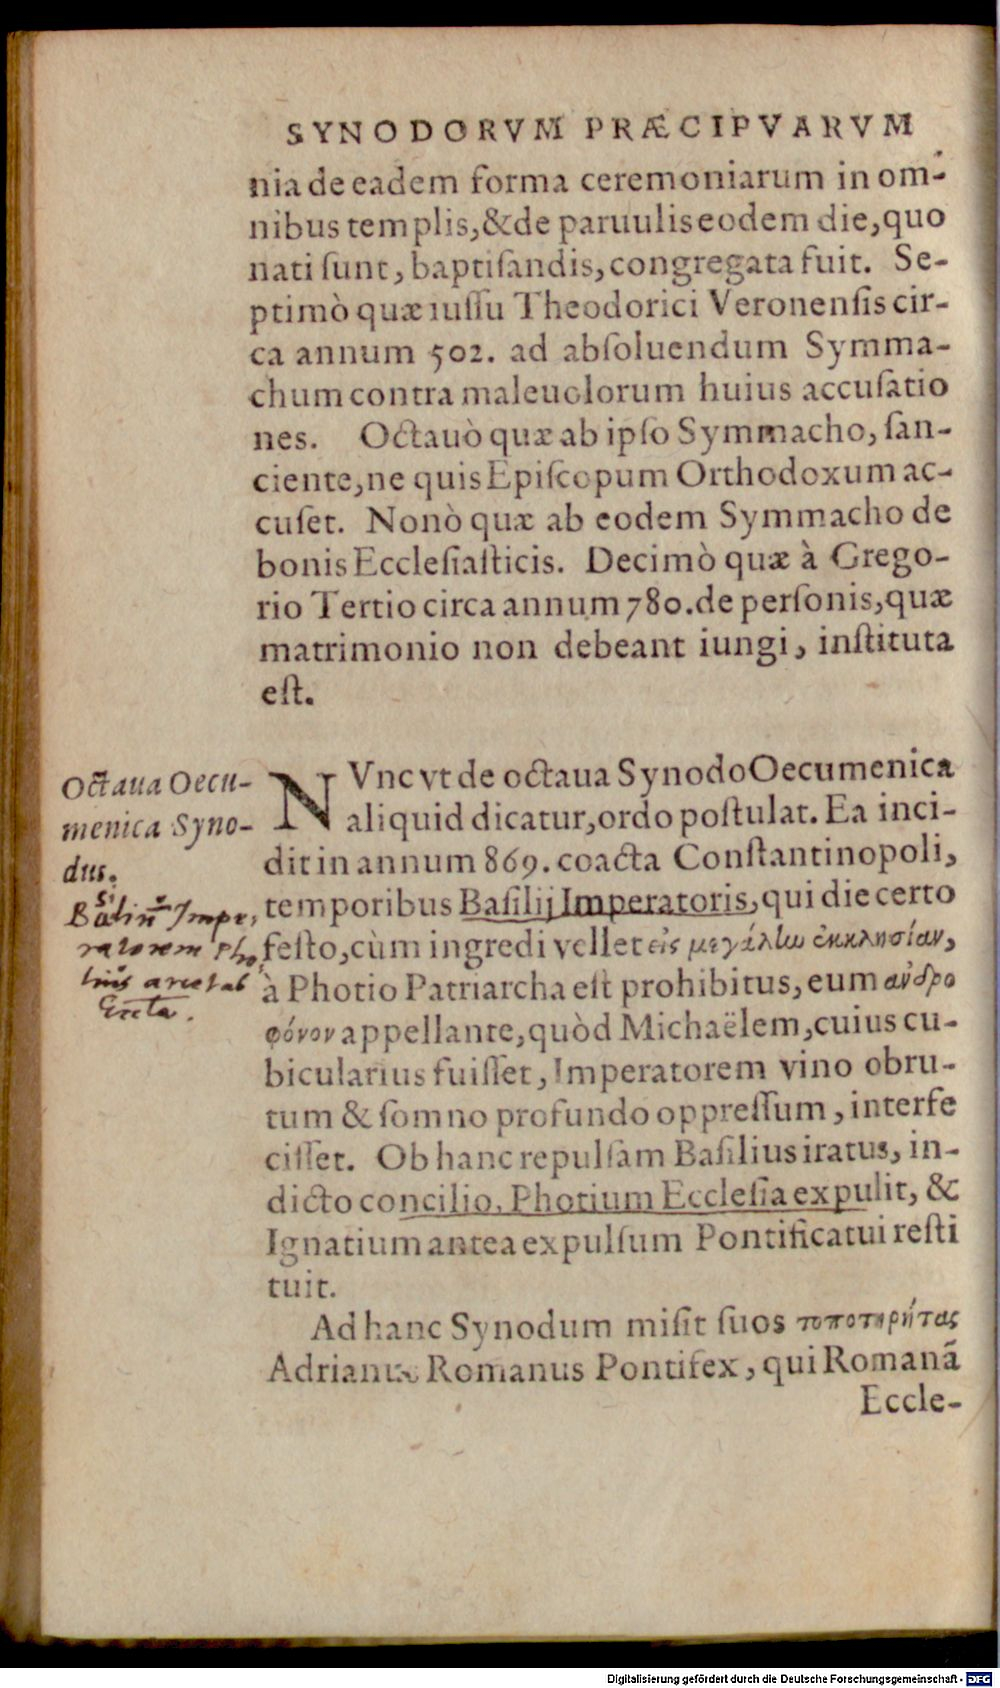 SYNODORVM PRÆCIPVARVM
nia de eadem forma ceremoniarum in om-
nibus templis, & de paruulis eodem die, quo
nati sunt, baptisandis, congregata fuit. Se-
ptimò quæ iussu Theodorici Veronensis cir-
ca annum 502. ad absoluendum Symma-
chum contra maleuolorum huius accusatio
nes. Octauò quæ ab ipso Symmacho, san-
ciente, ne quis Episcopum Orthodoxum ac-
cuset. Nonò quæ ab eodem Symmacho de
bonis Ecclesiasticis. Decimò quæ à Grego-
rio Tertio circa annum 780. de personis, quæ
matrimonio non debeant iungi, instituta
est.
Octaua Oecu-
menica Syno-
dus.
Imperatorem
NVnc vt de octaua Synodo Oecumenica
aliquid dicatur, ordo postulat. Ea inci-
dit in annum 869. coacta Constantinopoli,
temporibus Basilij Imperatoris, qui die certo
festo, cùm ingredi vellet εἰς μεγάλην ἐκκλησίαν,
à Photio Patriarcha est prohibitus, eum ἀνδρο
φόνον appellante, quòd Michaëlem, cuius cu-
bicularius fuisset, Imperatorem vino obru-
tum & somno profundo oppressum, interfe
cisset. Ob hanc repulsam Basilius iratus, in-
dicto concilio, Photium Ecclesia expulit, &
Ignatium antea expulsum Pontificatui resti
tuit.
Ad hanc Synodum misit suos τοποτηρήτας
Adrianus Romanus Pontifex, qui Romanã
Eccle-
Digitalisierung gefördert durch die Deutsche Forschungsgemeinschaft - DFG